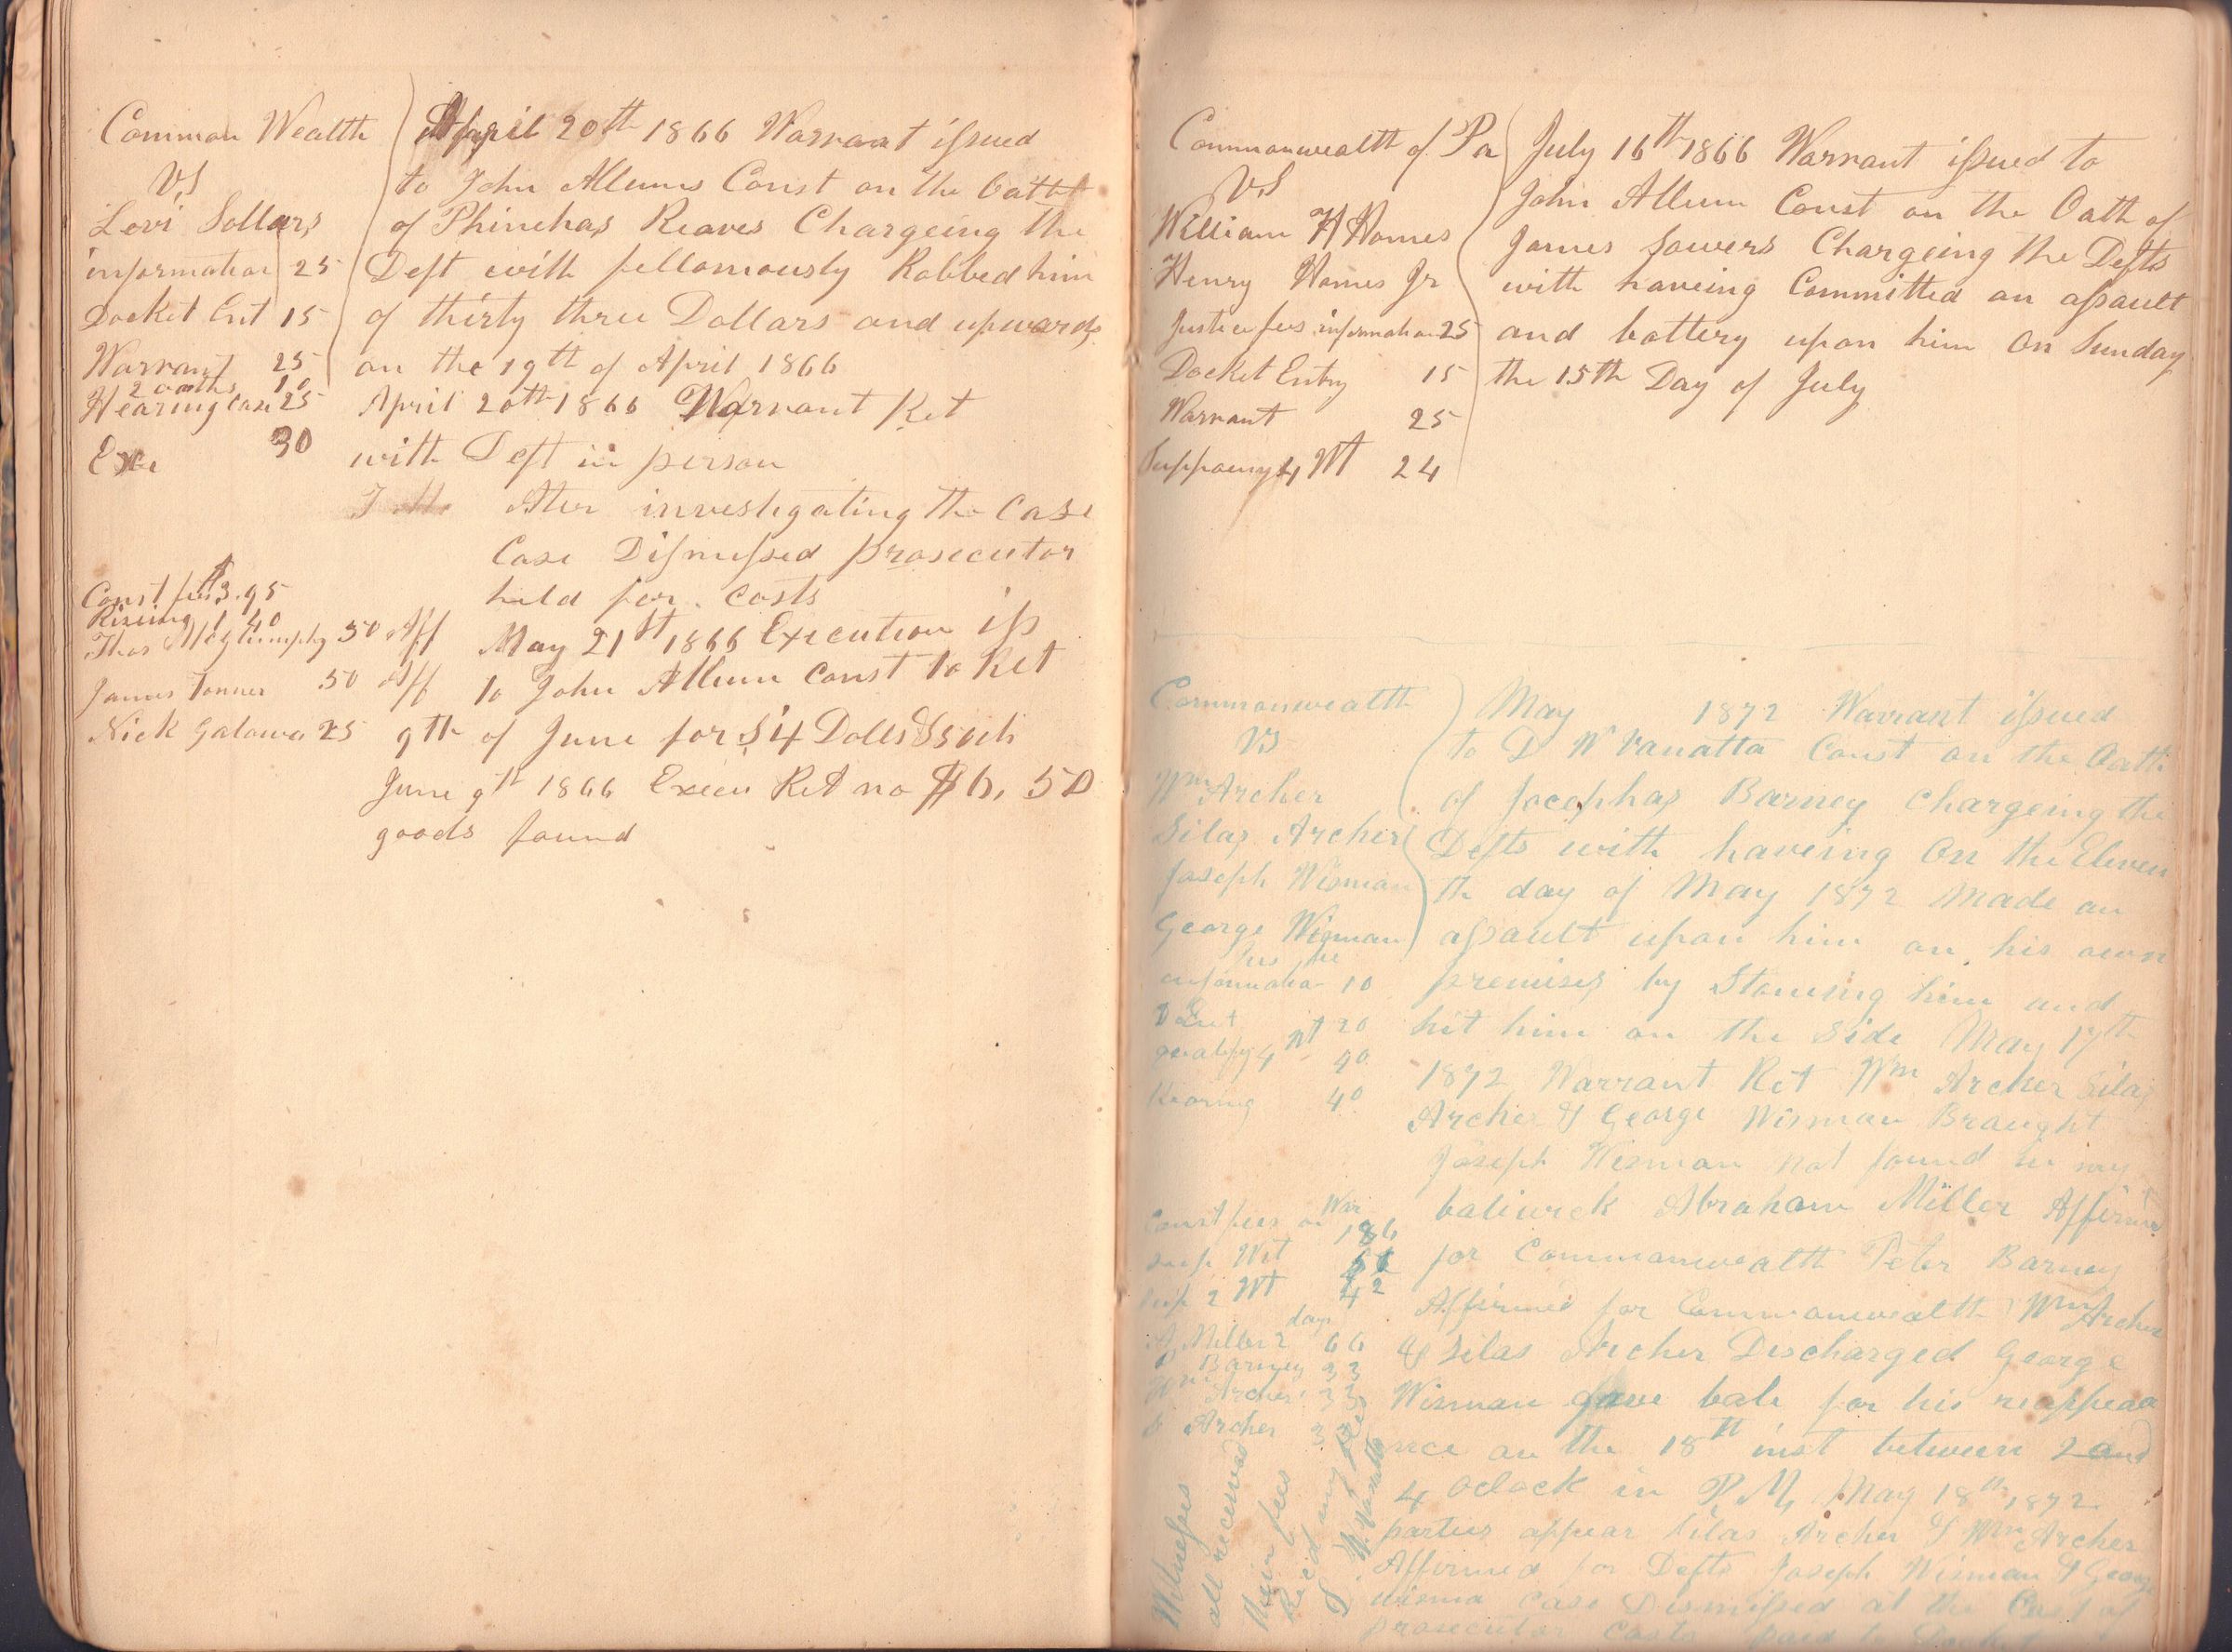 Common Wealth
VS
Levi Sollars
information 25
Docket Ent 15
Warrant 25
2 oaths 10
Hearing Case 25
Exe 30
Const fees $3.95
40
Thos 50 Aff
James Tonner 50 Aff
Nick Galowa 25
April 20th 1866 Warrant issued
to John Allums Const on the Oath
of Phinehas Reaves Chargeing the
Deft with fellomously Robbed him
of thirty three Dollars and upwards
on the 19th of April 1866
April 20th 1866 Warrant Ret
with Deft in person
Ater investigating the Case
Case Dismissed prosecutor
held for costs
May 21st 1866 Execution iss
to John Allum Const to Ret
9th of June for $4 Dolls
June 9th 1866 Execu Ret no $6,50
goods found
Commonwealth of Pa
VS
William H Homes
Henry Homes Jr
Justice fees information 25
Docket Entry 15
Warrant 25
4 Wt 24
July 16th 1866 Warrant issued to
John Allum Const on the Oath of
James Sowers Chargeing the Defts
with haveing Committed an assault
and battery upon him on Sunday
the 15th Day of July
Commonwealth
VS
Wm Archer
Silas Archer
Joseph Wisman
George Wisman
information 10
20
qualify 4 Wt 40
Hearing 40
Const fees on War 186
Wit
2 Wt 42
A Miller 2 days 66
P Barney 33
Wm Archer 33
S Archer 33
Witnesses
all received
their fees
Recd my fees
D W Vanatta
May 1872 Warrant issued
to D W Vanatta Const on the Oath
of Jocephas Barney chargeing the
Defts with haveing On the Eleven
th day of May 1872 Made an
assault upon him on his own
premises by Stoneing him and
hit him on the Side May 17th
1872 Warrant Ret Wm Archer Silas
Archer & George Wisman Braught
Joseph Wisman not found in my
baliwick Abraham Miller Affirmed
for Commonwealth Peter Barney
Affirmed for Commonwealth Wm Archer
& Silas Archer Discharged George
Wisman gave bale for his reappeara
nce on the 18th inst between 2 and
4 Oclock in P.M, May 18th 1872
parties appear Silas Archer & Wm Archer
Affirmed for Defts Joseph Wisman & George
Case Dismissed at the Cost of
prosecutor Costs paid